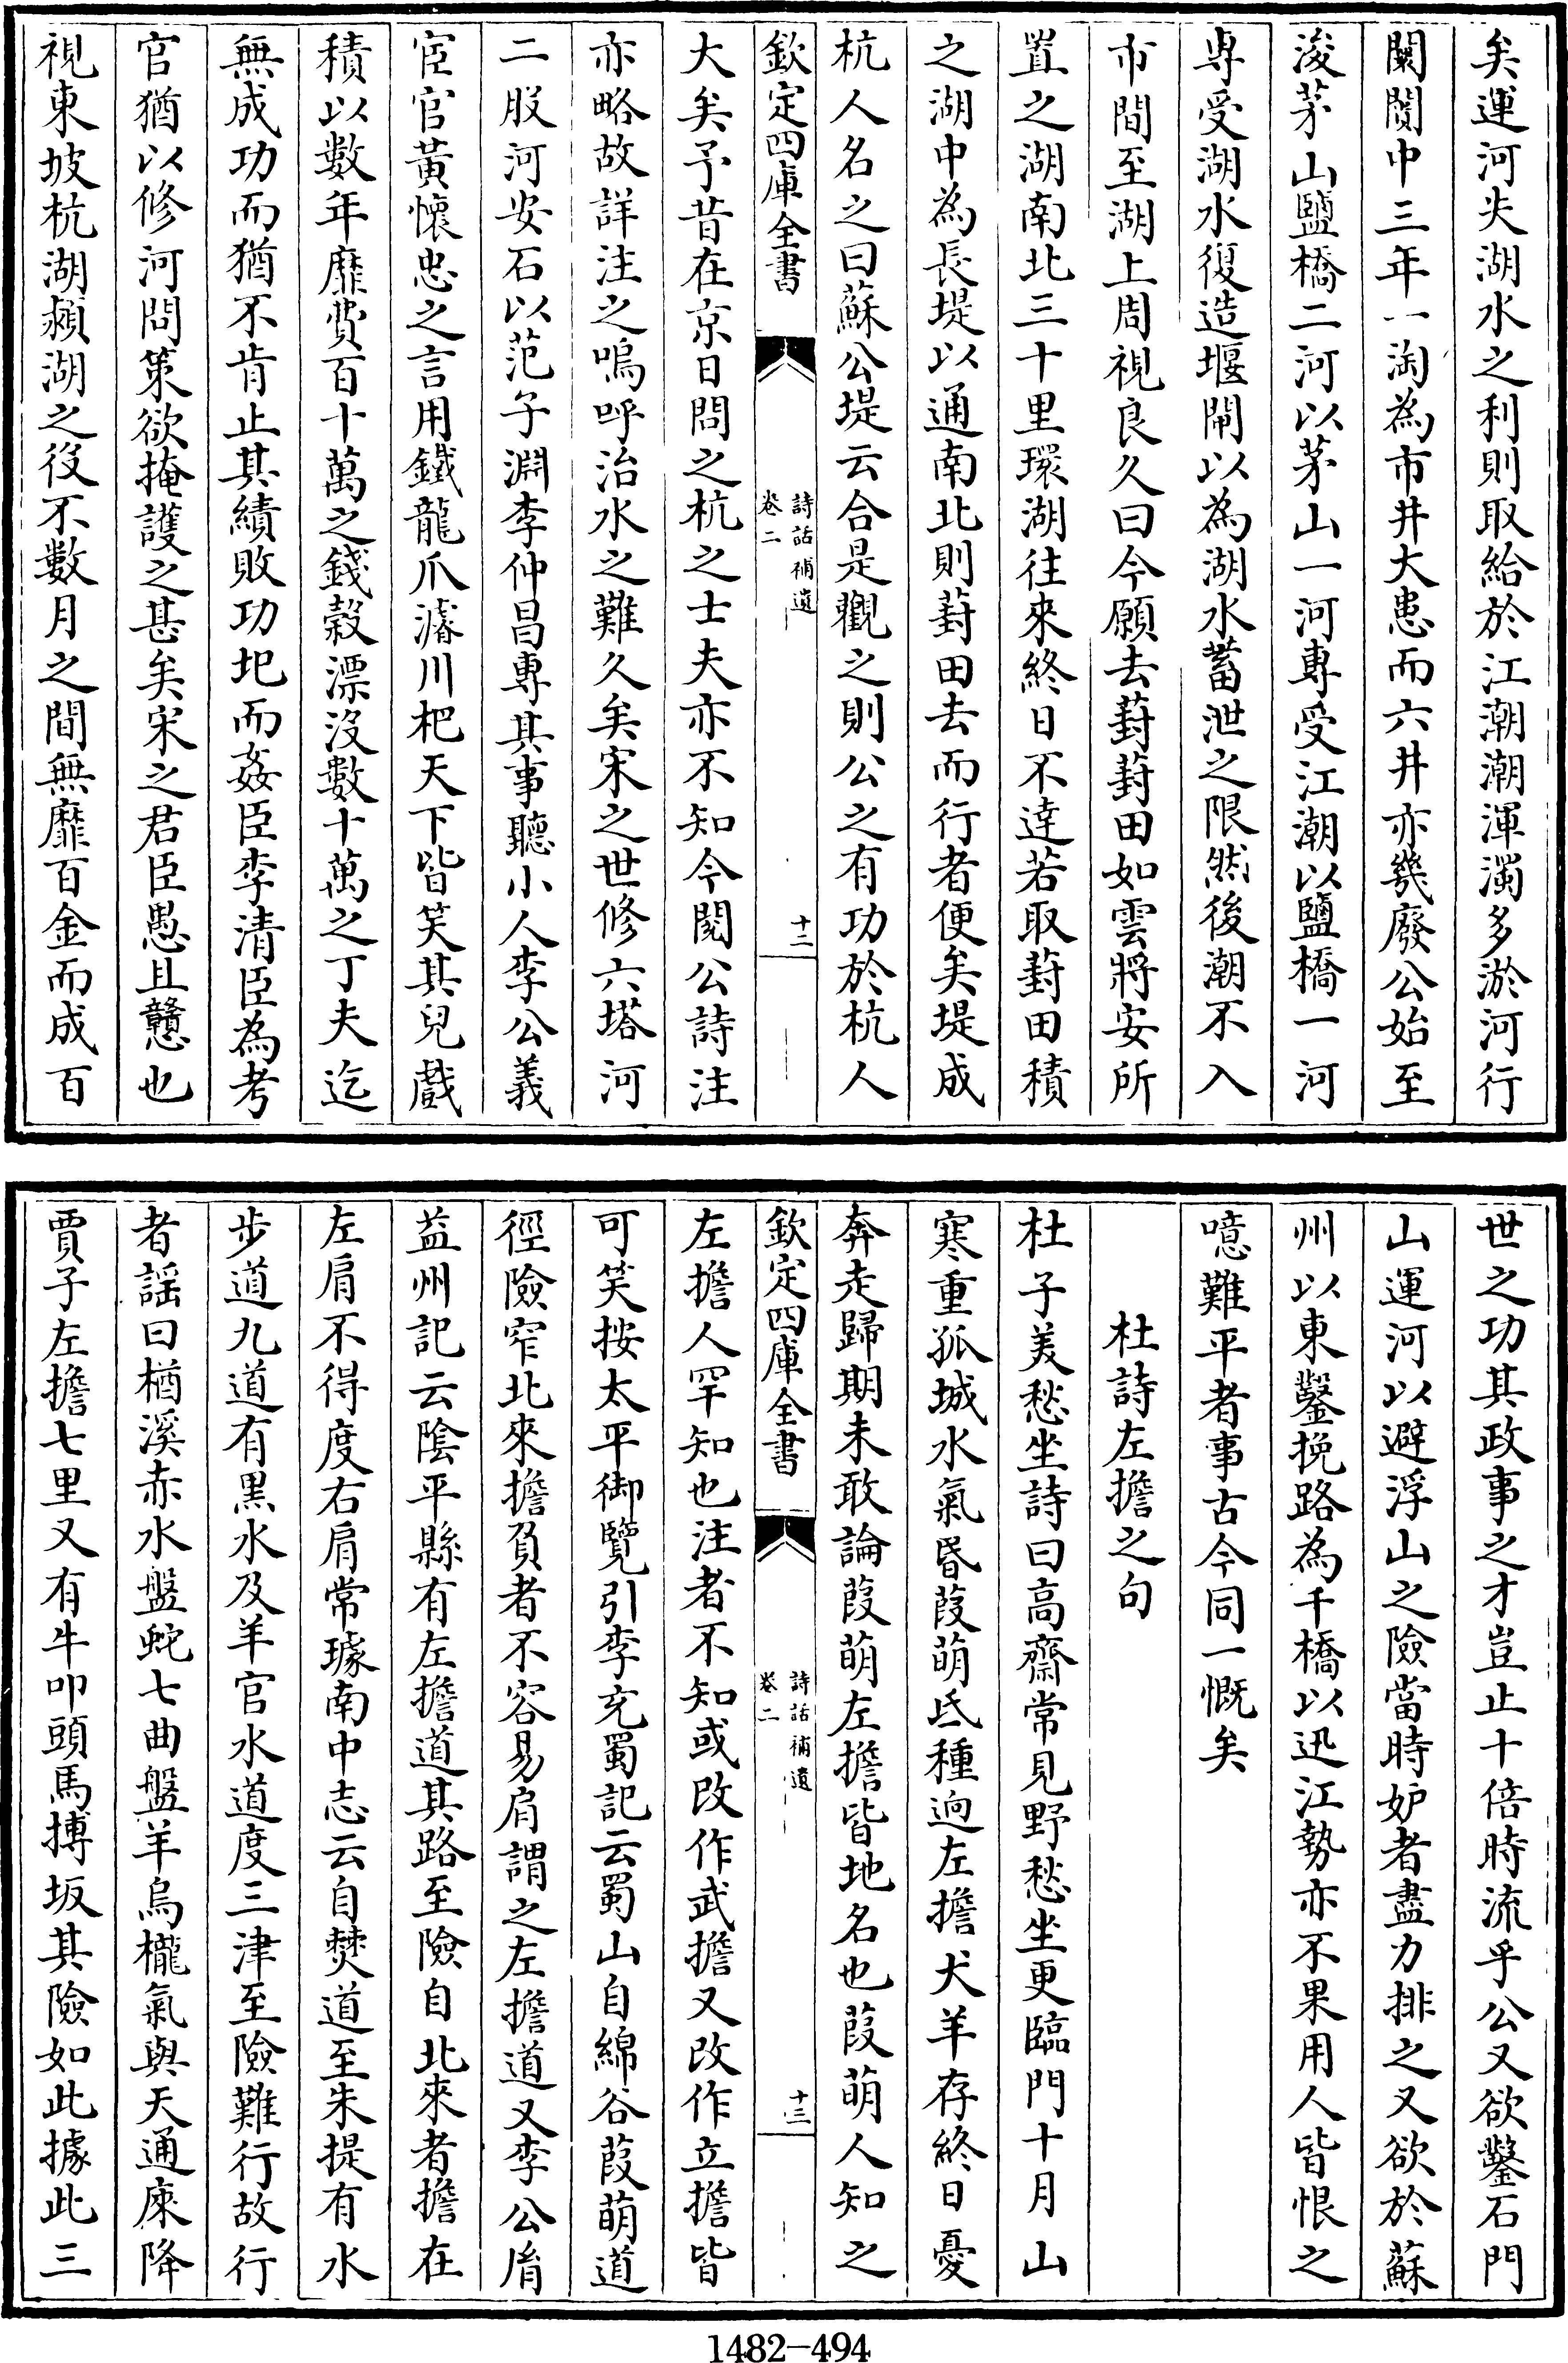 矣運河失湖水之利則取給於江潮潮渾濁多淤河行
闤闠中三年一淘為市井大患而六井亦幾廢公始至
浚茅山鹽橋二河以茅山一河專受江潮以鹽橋一河
專受湖水復造堰閘以為湖水蓄泄之限然後潮不入
市間至湖上周視良久曰今願去葑葑田如雲將安所
置之湖南北三十里環湖往來終日不達若取葑田積
之湖中為長堤以通南北則葑田去而行者便矣堤成
杭人名之曰蘇公堤云合是觀之則公之有功於杭人
欽定四庫全書
詩話補遺
卷二
十二
大矣予昔在京日問之杭之士夫亦不知今閱公詩注
亦略故詳注之嗚呼治水之難久矣宋之世修六塔河
二股河安石以范子淵李仲昌專其事聽小人李公義
宦官黃懷忠之言用鐵龍爪濬川杷天下皆笑其兒戲
積以數年靡費百十萬之錢穀漂沒數十萬之丁夫迄
無成功而猶不肯止其績敗功圯而姦臣李清臣為考
官猶以修河問策欲掩護之甚矣宋之君臣愚且戇也
視東坡杭湖潁湖之役不數月之間無靡百金而成百
世之功其政事之才豈止十倍時流乎公又欲鑿石門
山運河以避浮山之險當時妒者盡力排之又欲於蘇
州以東鑿挽路為千橋以迅江勢亦不果用人皆恨之
噫難平者事古今同一慨矣
杜詩左擔之句
杜子美愁坐詩曰高齋常見野愁坐更臨門十月山
寒重孤城水氣昏葭萌氐種逈左擔犬羊存終日憂
奔走歸期未敢論葭萌左擔皆地名也葭萌人知之
欽定四庫全書
詩話補遺
卷二
十三
左擔人罕知也注者不知或改作武擔又改作立擔皆
可笑按太平御覽引李充蜀記云蜀山自綿谷葭萌道
徑險窄北來擔負者不容易肩謂之左擔道又李公胤
益州記云陰平縣有左擔道其路至險自北來者擔在
左肩不得度右肩常璩南中志云自僰道至朱提有水
步道九道有黑水及羊官水道度三津至險難行故行
者謠曰楢溪赤水盤蛇七曲盤羊烏櫳氣與天通庲降
賈子左擔七里又有牛叩頭馬搏坂其險如此據此三
1482-494